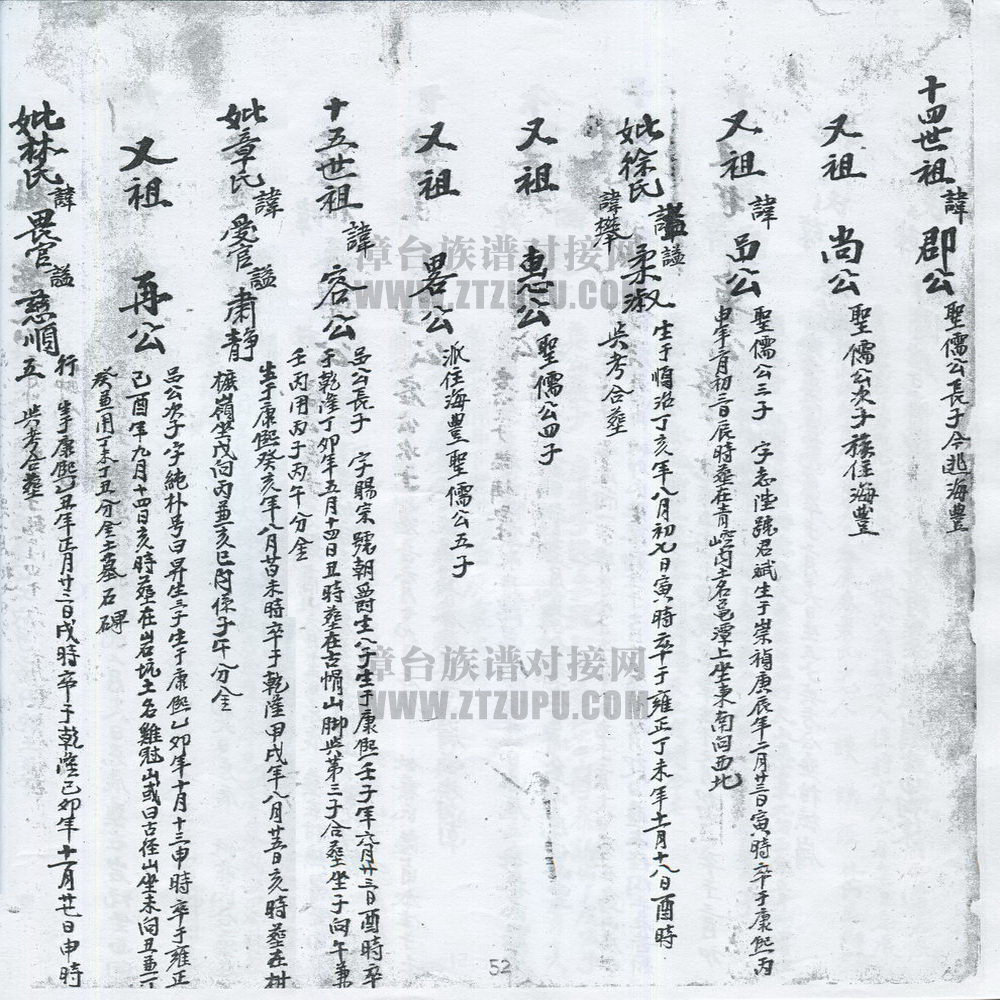 十四世祖諱郡公
聖儒公長子今逃海豐
又祖尚公
聖儒公次子移住海豐
又祖諱呂公
聖儒公三子 字志陸號君斌生于崇禎庚辰年二月廿三日寅時卒于康熙丙
申年六月初三日辰時葬在青土名邑潭上坐東南向西北
妣徐氏諡柔淑
諱攀
生于順治丁亥年八月初七日寅時卒于雍正丁未年十一月十八日酉時
與考合葬
又祖惠公
聖儒公四子
又祖畧公
派住海豐聖儒公五子
十五世祖諱容公
呂公長子 字賜宗號朝爵生八子生于康熙壬子年六月廿三日酉時卒
于乾隆丁卯年五月十四日丑時葬在古帽山脚與第三子合葬坐子向午兼
壬丙用丙子丙午分金
妣章氏諱愛官諡肅静
生于康熙癸亥年八月未時卒于乾隆甲戌年八月廿五日亥時葬在樹
嶺坐戊向丙兼亥巳係子午分金
又祖再公
呂公次子字純朴号曰昇生三子生于康熙乙卯年十月十三申時卒于雍正
己酉年九月十四日亥時葬在岩坑土名雞冠山或曰古徑山坐未向丑兼丁
癸兼用丁未丁丑分金土墓石碑
妣林氏諱畏官諡慈順
行五
生于康熙乙丑年正月廿二日戌時卒于乾隆己卯年十一月廿七日申時
與考合葬
52
漳台族谱对接网
WWW.ZTZUPU.COM
漳台族谱对接网
WWW.ZTZUPU.COM